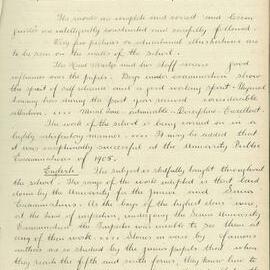 The books are complete and correct and Lesson
guides are intelligently constructed and carefully followed.
Very few pictures or educational illustrations are
to be seen on the walls of the school.
The Head Master and his staff exercise good
influence over the pupils. Boys under examination show
the spirit of self reliance and a good working spirit. Physical
training has during the past year received considerable
attention. Moral tone: admirable. Discipline: Excellent.
The work of the school is being carried on in a
highly satisfactory manner. It may be added that
it was exceptionally successful at the University Public
Examinations of 1905.
English The subject is skilfully taught throughout
the school. The range of the work adopted is that laid
down by the University for the Junior and Senior
Examinations. As the boys of the highest class were,
at the time of inspection, undergoing the Senior University
Examination the Inspector was unable to see them at
any of their work.
method as is studied by the junior pupils that when
they reach the fifth and sixth forms, they know how to